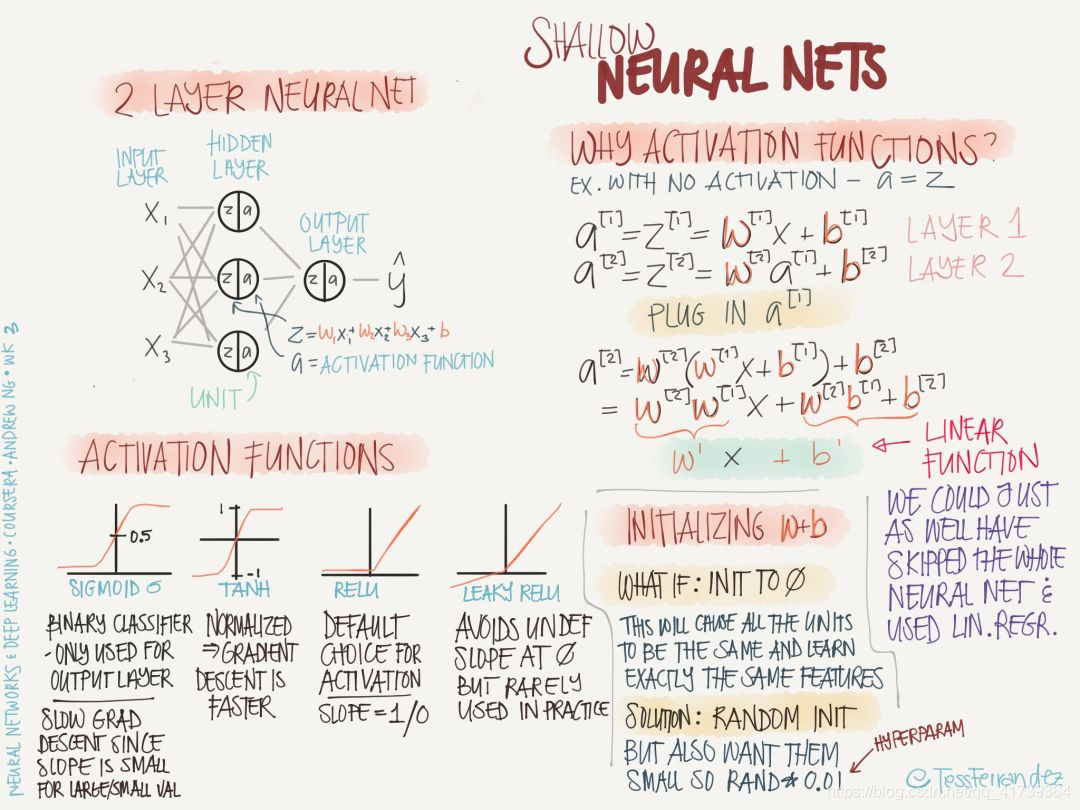 SHALLOW
NEURAL NETS
2 LAYER NEURAL NET
INPUT
LAYER
HIDDEN
LAYER
OUTPUT
LAYER
X₁
X₂
X₃
z a
z a
z a
z a
ŷ
z = w₁x₁ + w₂x₂ + w₃x₃ + b
a = ACTIVATION FUNCTION
UNIT
ACTIVATION FUNCTIONS
0.5
SIGMOID σ
BINARY CLASSIFIER
- ONLY USED FOR
OUTPUT LAYER
SLOW GRAD
DESCENT SINCE
SLOPE IS SMALL
FOR LARGE/SMALL VAL
1
-1
TANH
NORMALIZED
⇒ GRADIENT
DESCENT IS
FASTER
RELU
DEFAULT
CHOICE FOR
ACTIVATION
SLOPE = 1/0
LEAKY RELU
AVOIDS UNDEF
SLOPE AT Ø
BUT RARELY
USED IN PRACTICE
WHY ACTIVATION FUNCTIONS?
EX. WITH NO ACTIVATION - a = z
a[1] = z[1] = w[1]x + b[1] LAYER 1
a[2] = z[2] = w[2]a[1] + b[2] LAYER 2
PLUG IN a[1]
a[2] = w[2](w[1]x + b[1]) + b[2]
= w[2]w[1]x + w[2]b[1] + b[2]
w' x + b'
LINEAR
FUNCTION
WE COULD JUST
AS WELL HAVE
SKIPPED THE WHOLE
NEURAL NET &
USED LIN. REGR.
INITIALIZING w+b
WHAT IF: INIT TO Ø
THIS WILL CAUSE ALL THE UNITS
TO BE THE SAME AND LEARN
EXACTLY THE SAME FEATURES
SOLUTION: RANDOM INIT
BUT ALSO WANT THEM
SMALL SO RAND * 0.01
HYPERPARAM
@TessFerrandez
NEURAL NETWORKS & DEEP LEARNING • COURSERA • ANDREW NG • WK 3
https://blog.csdn.net/qq_41739364